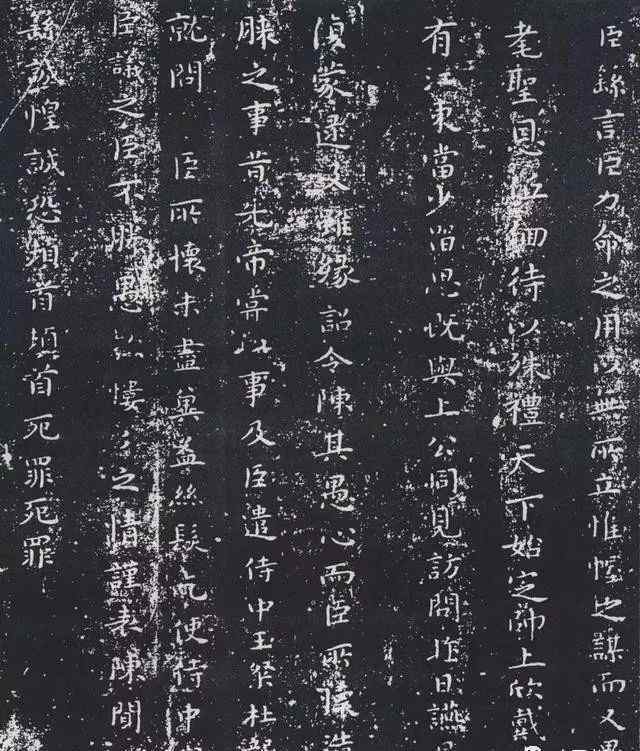 臣繇言臣力命之用以無所立惟幄之謀而又愚
耄聖恩低佪待以殊禮天下始定師土欣戴
有江東當少留思既與上公同見訪問昨日讌
復蒙逮及雖緣詔令陳其愚心而臣所懷造
膝之事昔先帝嘗以事及臣遣侍中王粲杜襲
就問臣所懷未盡奚益絲髮乞使侍中
臣議之臣不勝愚款慺慺之情謹表陳聞
繇誠惶誠恐頓首頓首死罪死罪